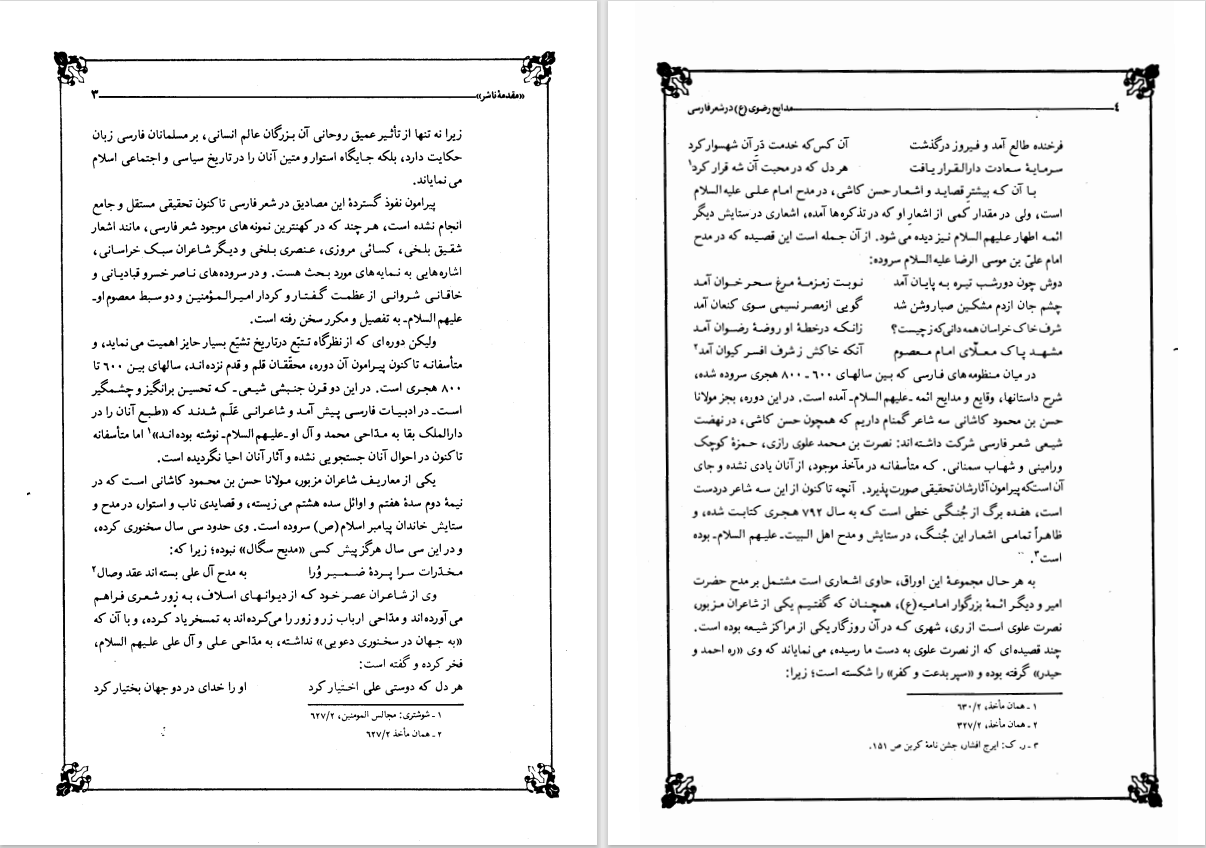 «مقدمهٔ ناشر» ۳
زیرا نه تنها از تأثیر عمیق روحانی آن بزرگان عالم انسانی، بر مسلمانان فارسی زبان
حکایت دارد، بلکه جایگاه استوار و متین آنان را در تاریخ سیاسی و اجتماعی اسلام
می نمایاند.
پیرامون نفوذ گستردهٔ این مصادیق در شعر فارسی تا کنون تحقیقی مستقل و جامع
انجام نشده است، هر چند که در کهنترین نمونه های موجود شعر فارسی، مانند اشعار
شقیق بلخی، کسائی مروزی، عنصری بلخی و دیگر شاعران سبک خراسانی،
اشاره هایی به نمایه های مورد بحث هست. و در سروده های ناصر خسرو قبادیانی و
خاقانی شروانی از عظمت گفتار و کردار امیرالمؤمنین و دو سبط معصوم او-
علیهم السلام- به تفصیل و مکرر سخن رفته است.
ولیکن دوره ای که از نظرگاه تتبّع در تاریخ تشیّع بسیار حایز اهمیت می نماید، و
متأسفانه تا کنون پیرامون آن دوره، محقّقان قلم و قدم نزده اند، سالهای بین ۶۰۰ تا
۸۰۰ هجری است. در این دو قرن جنبشی شیعی- که تحسین برانگیز و چشمگیر
است- در ادبیات فارسی پیش آمد و شاعرانی عَلَم شدند که «طبع آنان را در
دارالملک بقا به مدّاحی محمد و آل او -علیهم السلام- نوشته بوده اند»۱ اما متأسفانه
تا کنون در احوال آنان جستجویی نشده و آثار آنان احیا نگردیده است.
یکی از معاریف شاعران مزبور، مولانا حسن بن محمود کاشانی است که در
نیمهٔ دوم سدهٔ هفتم و اوائل سده هشتم می زیسته، و قصایدی ناب و استوار، در مدح و
ستایش خاندان پیامبر اسلام (ص) سروده است. وی حدود سی سال سخنوری کرده،
و در این سی سال هرگز پیش کسی «مدیح سگال» نبوده؛ زیرا که:
مخدّرات سرا پردهٔ ضمیر وُرا به مدح آل علی بسته اند عقد وصال۲
وی از شاعران عصر خود که از دیوانهای اسلاف، به زور شعری فراهم
می آورده اند و مدّاحی ارباب زر و زور را می کرده اند به تمسخر یاد کرده، و با آن که
«به جهان در سخنوری دعویی» نداشته، به مدّاحی علی و آل علی علیهم السلام،
فخر کرده و گفته است:
هر دل که دوستی علی اختیار کرد او را خدای در دو جهان بختیار کرد
۱ ـ شوشتری: مجالس المومنین، ۶۲۷/۲
۲ ـ همان مأخذ ۶۲۷/۲
٤ مدایح رضوی (ع) در شعر فارسی
فرخنده طالع آمد و فیروز درگذشت آن کس که خدمت دَر آن شهسوار کرد
سرمایهٔ سعادت دارالقرار یافت هر دل که در محبت آن شه قرار کرد۱
با آن که بیشتر قصاید و اشعار حسن کاشی، در مدح امام علی علیه السلام
است، ولی در مقدار کمی از اشعار او که در تذکره ها آمده، اشعاری در ستایش دیگر
ائمه اطهار علیهم السلام نیز دیده می شود. از آن جمله است این قصیده که در مدح
امام علیّ بن موسی الرضا علیه السلام سروده:
دوش چون دور شب تیره به پایان آمد نوبت زمزمهٔ مرغ سحر خوان آمد
چشم جان از دم مشکین صبا روشن شد گویی از مصر نسیمی سوی کنعان آمد
شرف خاک خراسان همه دانی که ز چیست؟ زانکه در خطهٔ او روضهٔ رضوان آمد
مشهد پاک معلّای امام معصوم آنکه خاکش ز شرف افسر کیوان آمد۲
در میان منظومه های فارسی که بین سالهای ۶۰۰ ـ ۸۰۰ هجری سروده شده،
شرح داستانها، وقایع و مدایح ائمه -علیهم السلام- آمده است. در این دوره، بجز مولانا
حسن بن محمود کاشانی سه شاعر گمنام داریم که همچون حسن کاشی، در نهضت
شیعی شعر فارسی شرکت داشته اند: نصرت بن محمد علوی رازی، حمزهٔ کوچک
ورامینی و شهاب سمنانی. که متأسفانه در مآخذ موجود، از آنان یادی نشده و جای
آن است که پیرامون آثارشان تحقیقی صورت پذیرد. آنچه تا کنون از این سه شاعر در دست
است، هفده برگ از جُنگی خطی است که به سال ۷۹۲ هجری کتابت شده، و
ظاهراً تمامی اشعار این جُنگ، در ستایش و مدح اهل البیت -علیهم السلام- بوده
است۳.
به هر حال مجموعهٔ این اوراق، حاوی اشعاری است مشتمل بر مدح حضرت
امیر و دیگر ائمهٔ بزرگوار امامیه (ع)، همچنان که گفتیم یکی از شاعران مزبور،
نصرت علوی است از ری، شهری که در آن روزگار یکی از مراکز شیعه بوده است.
چند قصیده ای که از نصرت علوی به دست ما رسیده، می نمایاند که وی «ره احمد و
حیدر» گرفته بوده و «سپر بدعت و کفر» را شکسته است؛ زیرا:
۱ ـ همان مأخذ، ۶۳۰/۲
۲ ـ همان مأخذ، ۳۲۷/۲
۳ ـ ر. ک: ایرج افشار، جشن نامهٔ کربن ص ۱۵۱.